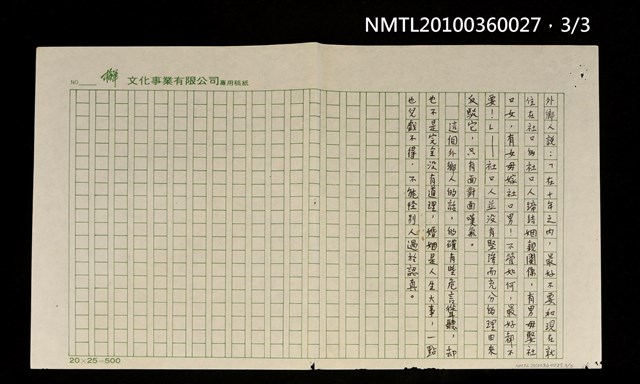 NMTL20100360027，3/3
NO
文化事業有限公司專用稿紙
外鄉人說：「在十年之內，最好不要和現在就
住在社口的社口人締結姻親關係，有男毋娶社
口女，有女毋嫁社口男！不管如何，最好都不
要！」——社口人並沒有堅強而充分的理由來
反駁它，只有面對面嘆氣。
這個外鄉人的話，的確有些危言聳聽，却
也不是完全沒有道理，婚姻是人生大事，一點
也兒戲不得，不能怪別人過於認真。
20×25=500
NMTL20100360027 3/3